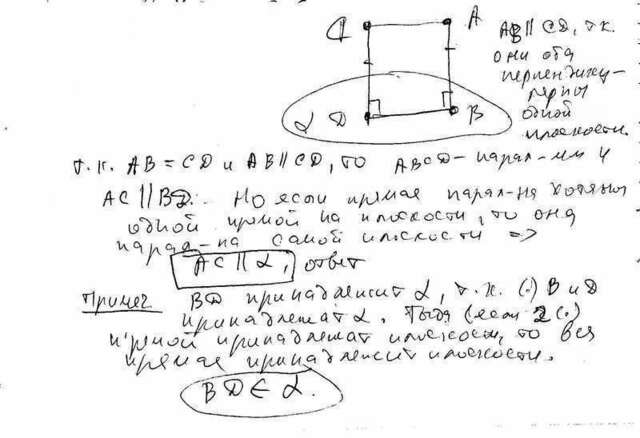 C A
AB || CD, т.к.
они оба
перпендику-
лярны
одной
плоскости.
α D B
т.к. AB = CD и AB || CD, то ABCD - парал-мм и
AC || BD. Но если прямая парал-на хотя бы
одной прямой на плоскости, то она
парал-на самой плоскости =>
AC || α, ответ
Примеч BD принадлежит α, т.к. (.) B и D
принадлежат α. (если 2 (.)
прямой принадлежат плоскости, то вся
прямая принадлежит плоскости.
BD ∈ α.